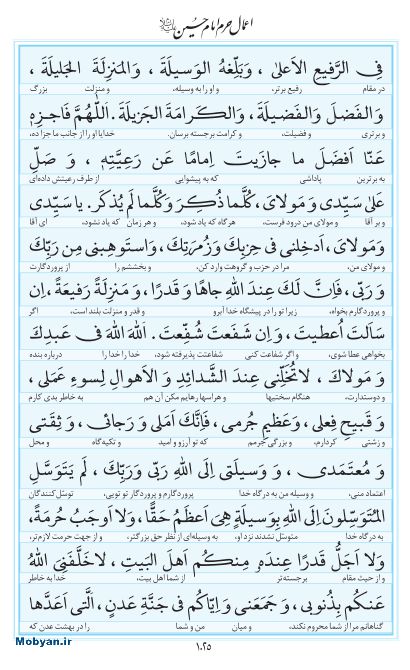 اعمال حرم امام حسین
فِى الرَّفيعِ الاَعلىٰ ، وَبَلِّغهُ الوَسيلَةَ ، وَالمَنزِلَةَ الجَليلَةَ ،
در مقام رفیع برتر، و او را به وسیله، و منزلت بزرگ
وَالفَضلَ وَالفَضيلَةَ ، وَالكَرامَةَ الجَزيلَةَ . اَللّٰهُمَّ فَاجزِهِ
و برتری و فضیلت، و کرامت برجسته برسان. خدایا او را از جانب ما جزا ده،
عَنّا اَفضَلَ ما جازَيتَ اِمامًا عَن رَعِيَّتِهِ ، وَ صَلِّ
به برترین پاداشی که به پیشوایی از طرف رعیتش داده‌ای
عَلىٰ سَيِّدى وَ مَولاىَ ، كُلَّما ذُكِرَ وَكُلَّما لَم يُذكَر . يا سَيِّدى
و بر آقا و مولای من درود فرست، هرگاه که یاد شود، و هر زمان که یاد نشود، ای آقا
وَمَولاىَ ، اَدخِلنى فى حِزبِكَ وَزُمرَتِكَ ، وَاستَوهِبنى مِن رَبِّكَ
و مولای من، مرا در حزب و گروهت وارد کن، و بخششم را از پروردگارت
وَ رَبّى ، فَاِنَّ لَكَ عِندَ اللّٰهِ جاهًا وَ قَدرًا ، وَ مَنزِلَةً رَفيعَةً ، اِن
و پروردگارم بخواه، زیرا تو را در پیشگاه خدا آبرو و قدر و منزلت بلند است، اگر
سَاَلتَ اُعطيتَ ، وَ اِن شَفَعتَ شُفِّعتَ . اَللّٰهَ اللّٰهَ فى عَبدِكَ
بخواهی عطا شوی، و اگر شفاعت کنی شفاعتت پذیرفته شود، خدا را خدا را درباره بنده
وَ مَولاكَ ، لا تُخَلِّنى عِندَ الشَّدائِدِ وَ الاَهوالِ لِسوءِ عَمَلى ،
و دوستدارت، هنگام سختیها و هراسها رهایم مکن آن هم به خاطر بدی کارم
وَ قَبيحِ فِعلى ، وَ عَظيمِ جُرمى ، فَاِنَّكَ اَمَلى وَ رَجائى ، وَ ثِقَتى
و زشتی کردارم، و بزرگی جرمم که تو آرزو و امید و تکیه‌گاه و محل
وَ مُعتَمَدى ، وَ وَسيلَتى اِلَى اللّٰهِ رَبّى وَ رَبِّكَ ، لَم يَتَوَسَّلِ
اعتماد منی، و وسیله من به درگاه خدا پروردگارم و پروردگار تو تویی، توسل کنندگان
المُتَوَسِّلونَ اِلَى اللّٰهِ بِوَسيلَةٍ هِىَ اَعظَمُ حَقًّا ، وَلا اَوجَبُ حُرمَةً ،
به درگاه خدا متوسل نشدند نزد او، به وسیله‌ای از نظر حق بزرگتر، و از جهت حرمت لازم‌تر،
وَلا اَجَلُّ قَدرًا عِندَهُ مِنكُم اَهلَ البَيتِ ، لا خَلَّفَنِى اللّٰهُ
و از حیث مقام برجسته‌تر از شما اهل بیت، خدا به خاطر
عَنكُم بِذُنوبى ، وَ جَمَعَنى وَ اِيّاكُم فى جَنَّةِ عَدنٍ ، الَّتى اَعَدَّها
گناهانم مرا از شما محروم نکند، و میان من و شما را در بهشت عدن که
١٠٢٥
Mobyan.ir